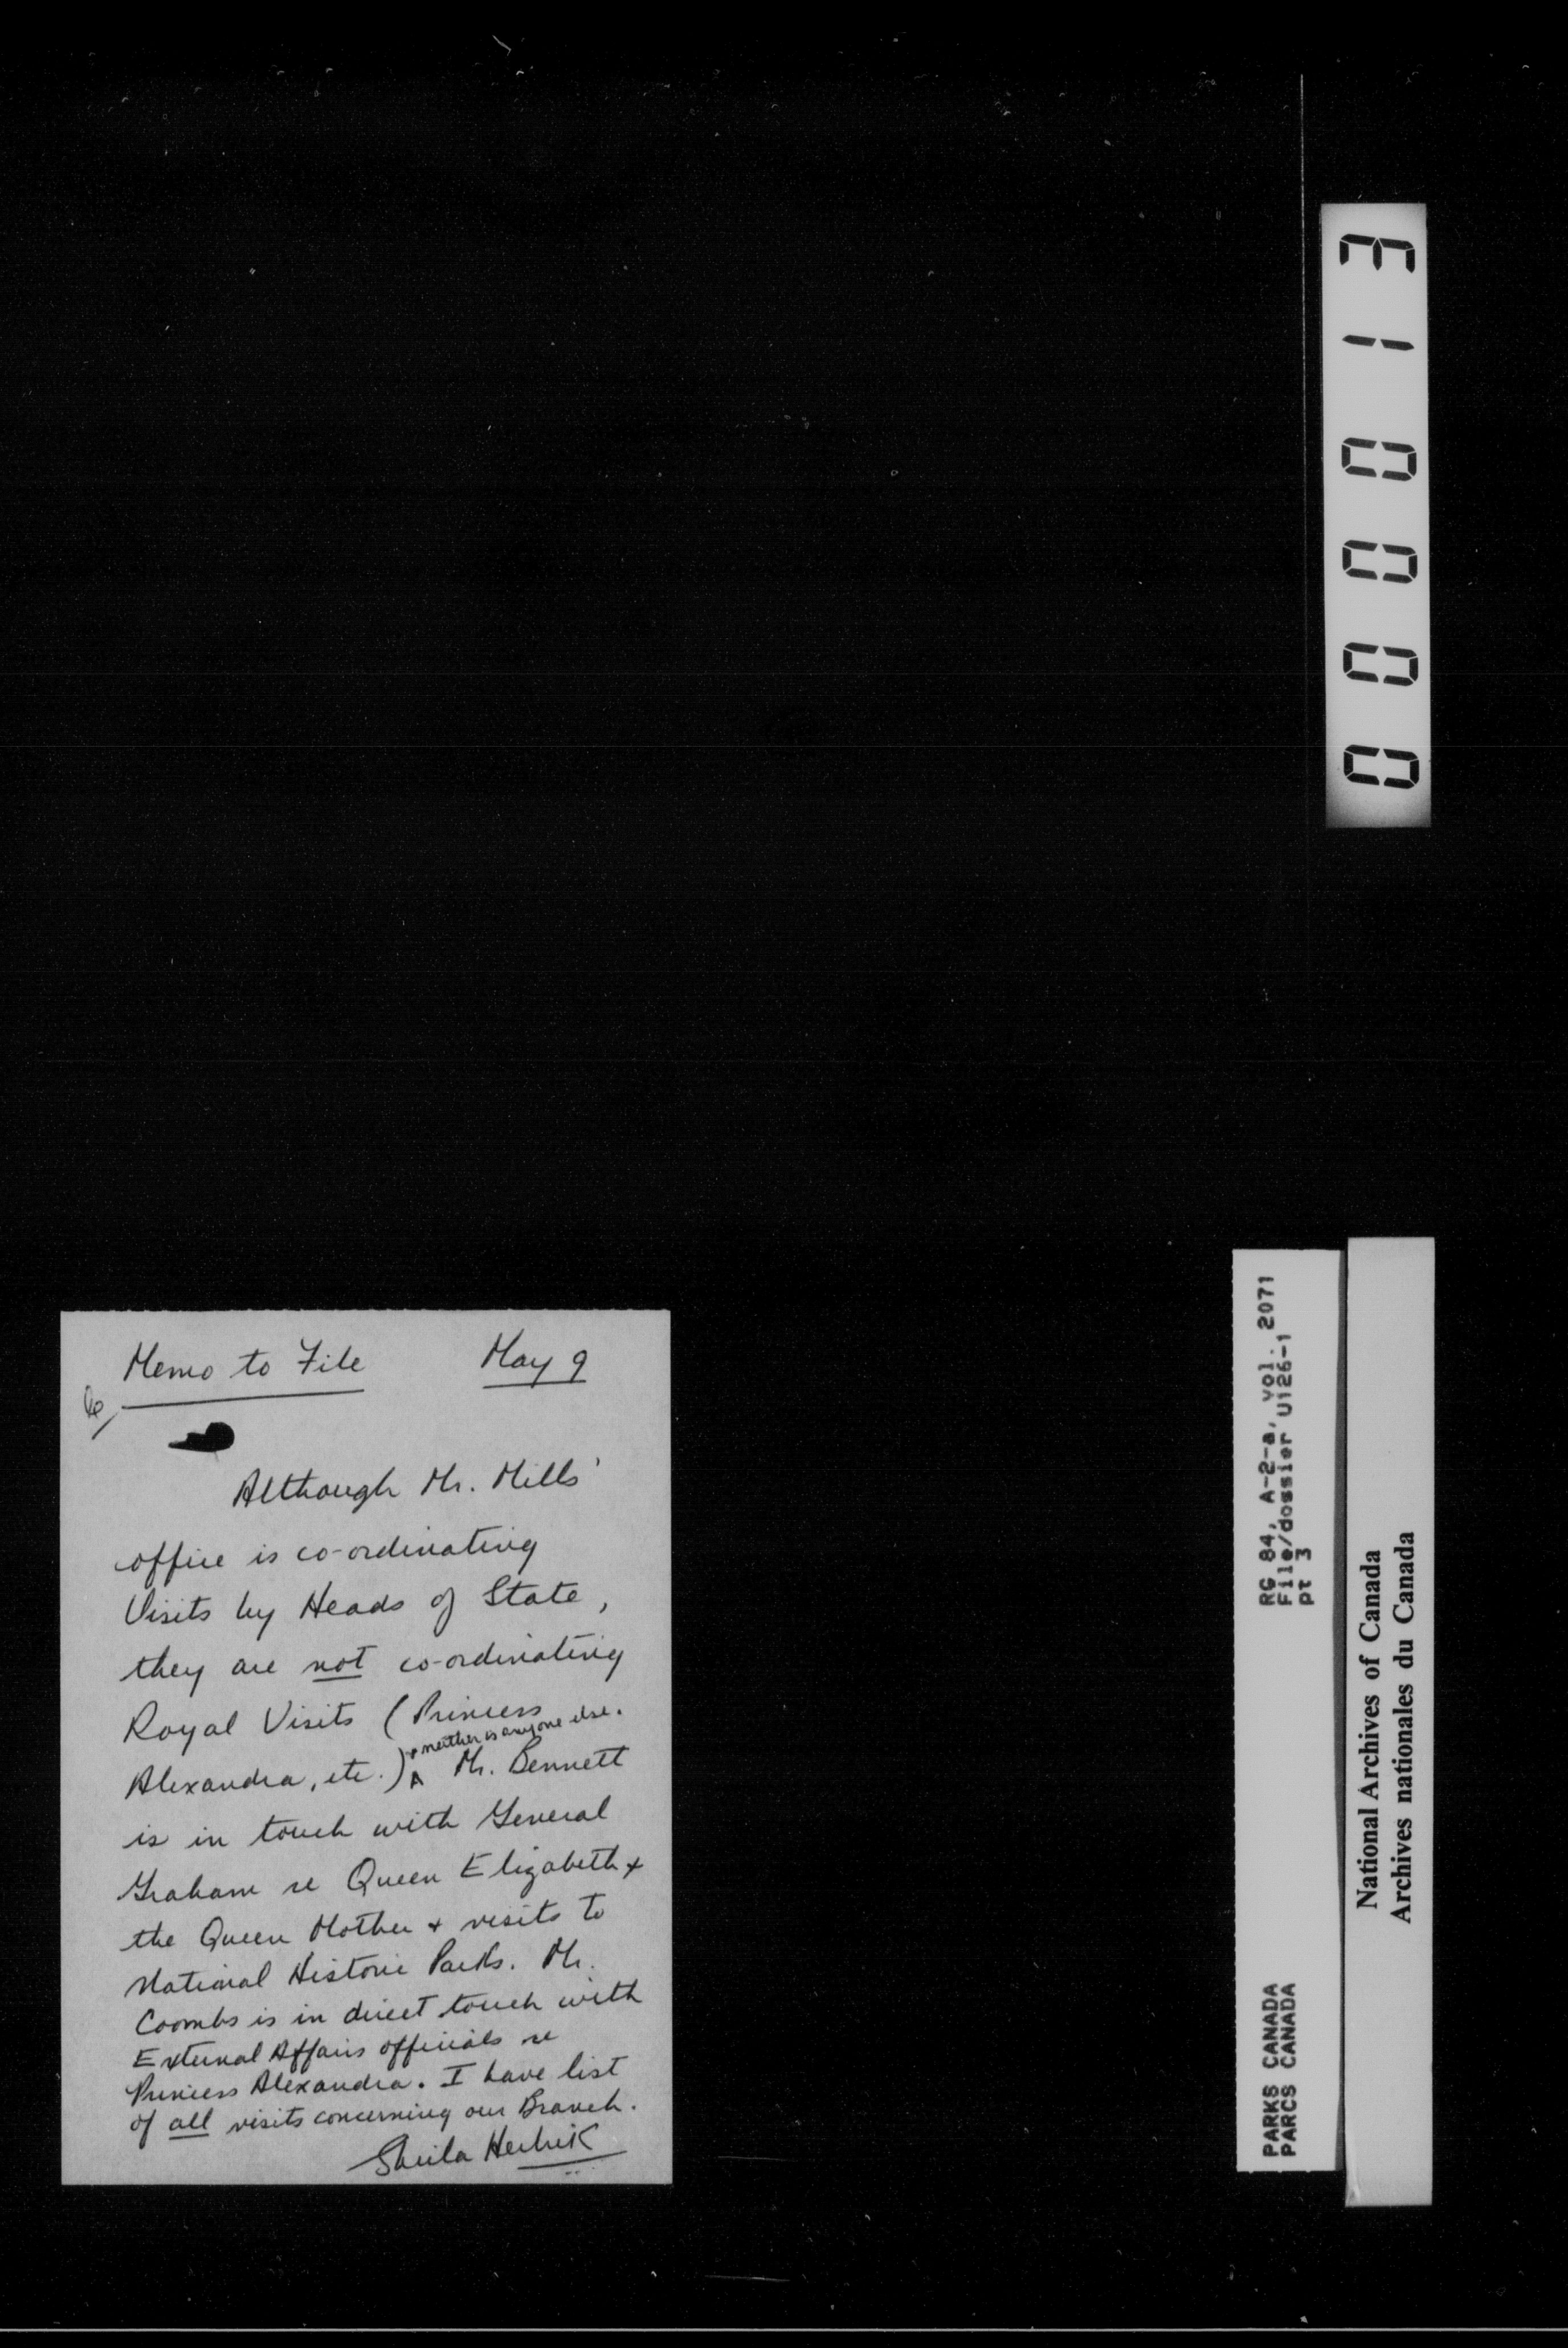 Memo to File May 9
Although Mr. Mills'
office is co-ordinating
Visits by Heads of State,
they are not co-ordinating
Royal Visits (Princess
Alexandra, etc.) & neither is anyone else. Mr. Bennett
is in touch with General
Graham re Queen Elizabeth &
the Queen Mother & visits to
National Historic Parks. Mr.
Coombs is in direct touch with
External Affairs officials re
Princess Alexandra. I have list
of all visits concerning our Branch.
Sheila
000013
RG 84, A-2-a, vol. 2071
File/dossier U126-1
pt 3
PARKS CANADA
PARCS CANADA
National Archives of Canada
Archives nationales du Canada